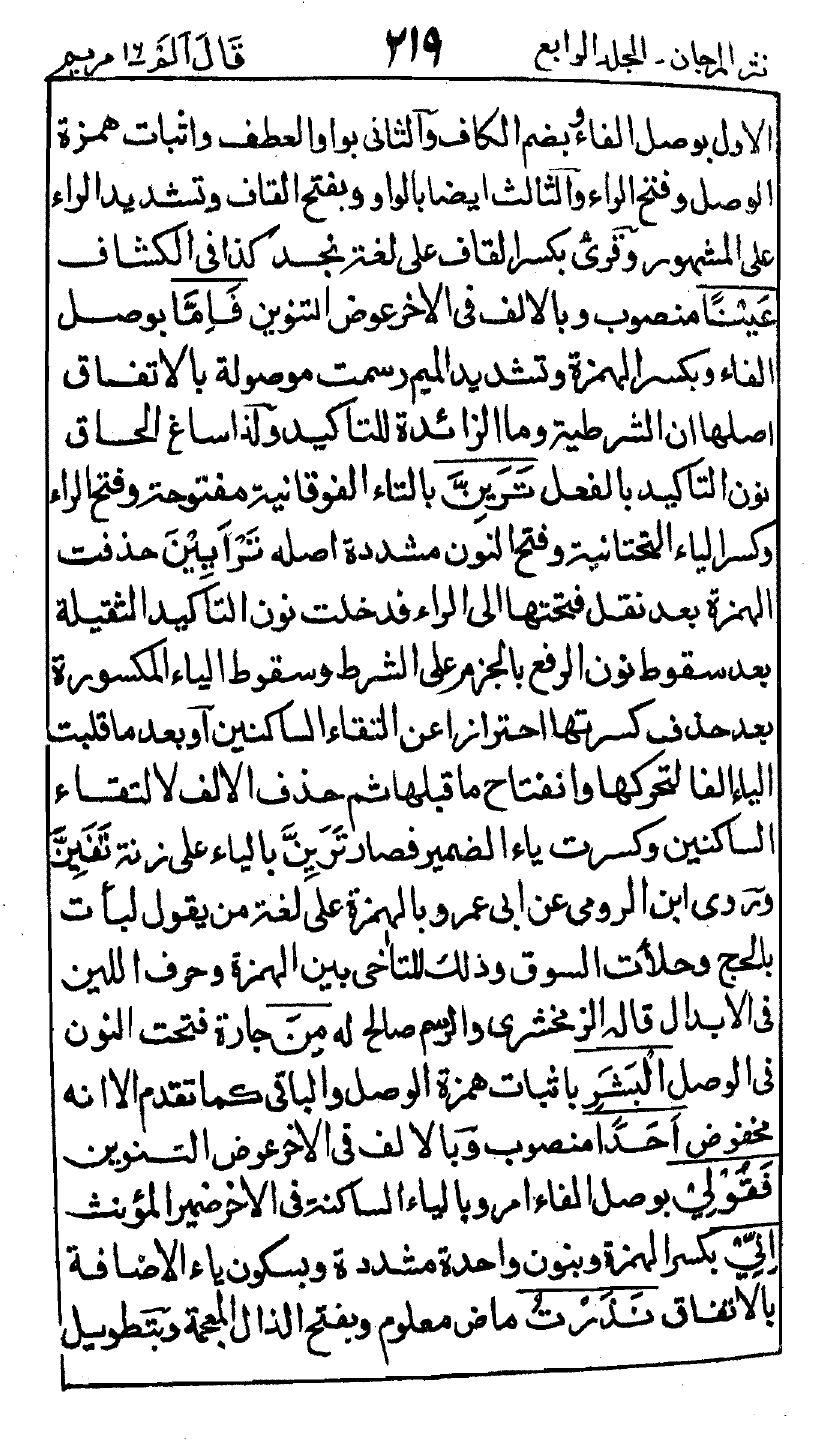 نثر المرجان - المجلد الرابع ٢١٩ قَالَ اَلَمْ ١٦ مريم
الاول بوصل الفاء وبضم الكاف والثانى بواو العطف واثبات همزة
الوصل وفتح الراء والثالث ايضا بالواو وبفتح القاف وتشديد الراء
على المشهور وقرئ بكسر القاف على لغة نجد كذا فى الكشاف
عَيْنًا منصوب وبالالف فى الاخر عوض التنوين فَاِمَّا بوصل
الفاء وبكسر الهمزة وتشديد الميم رسمت موصولة بالاتفاق
اصلها ان الشرطية وما الزائدة للتاكيد ولذا ساغ الحاق
نون التاكيد بالفعل تَرَيِنَّ بالتاء الفوقانية مفتوحة وفتح الراء
وكسر الياء التحتانية وفتح النون مشددة اصله تَرْاَيِيْنَ حذفت
الهمزة بعد نقل فتحتها الى الراء فدخلت نون التاكيد الثقيلة
بعد سقوط نون الرفع بالجزم على الشرط وسقوط الياء المكسورة
بعد حذف كسرتها احترازا عن التقاء الساكنين او بعد ما قلبت
الياء الفا لتحركها وانفتاح ما قبلها ثم حذف الالف لالتقاء
الساكنين وكسرت ياء الضمير فصار تَرَيِنَّ بالياء على زنة تَفَيِنَّ
وروى ابن الرومى عن ابى عمرو بالهمزة على لغة من يقول لبأت
بالحج وحلأت السوق وذلك للتأخى بين الهمزة وحرف اللين
فى الابدال قاله الزمخشرى والرسم صالح له مِنَ جارة فتحت النون
فى الوصل الْبَشَرِ باثبات همزة الوصل والباقى كما تقدم الا انه
مخفوض اَحَدًا منصوب وبالالف فى الاخر عوض التنوين
فَقُوْلِيْ بوصل الفاء امر وبالياء الساكنة فى الاخر ضمير المؤنث
اِنِّيْ بكسر الهمزة وبنون واحدة مشددة وبسكون ياء الاضافة
بالاتفاق نَذَرْتُ ماض معلوم وبفتح الذال المعجمة وبتطويل